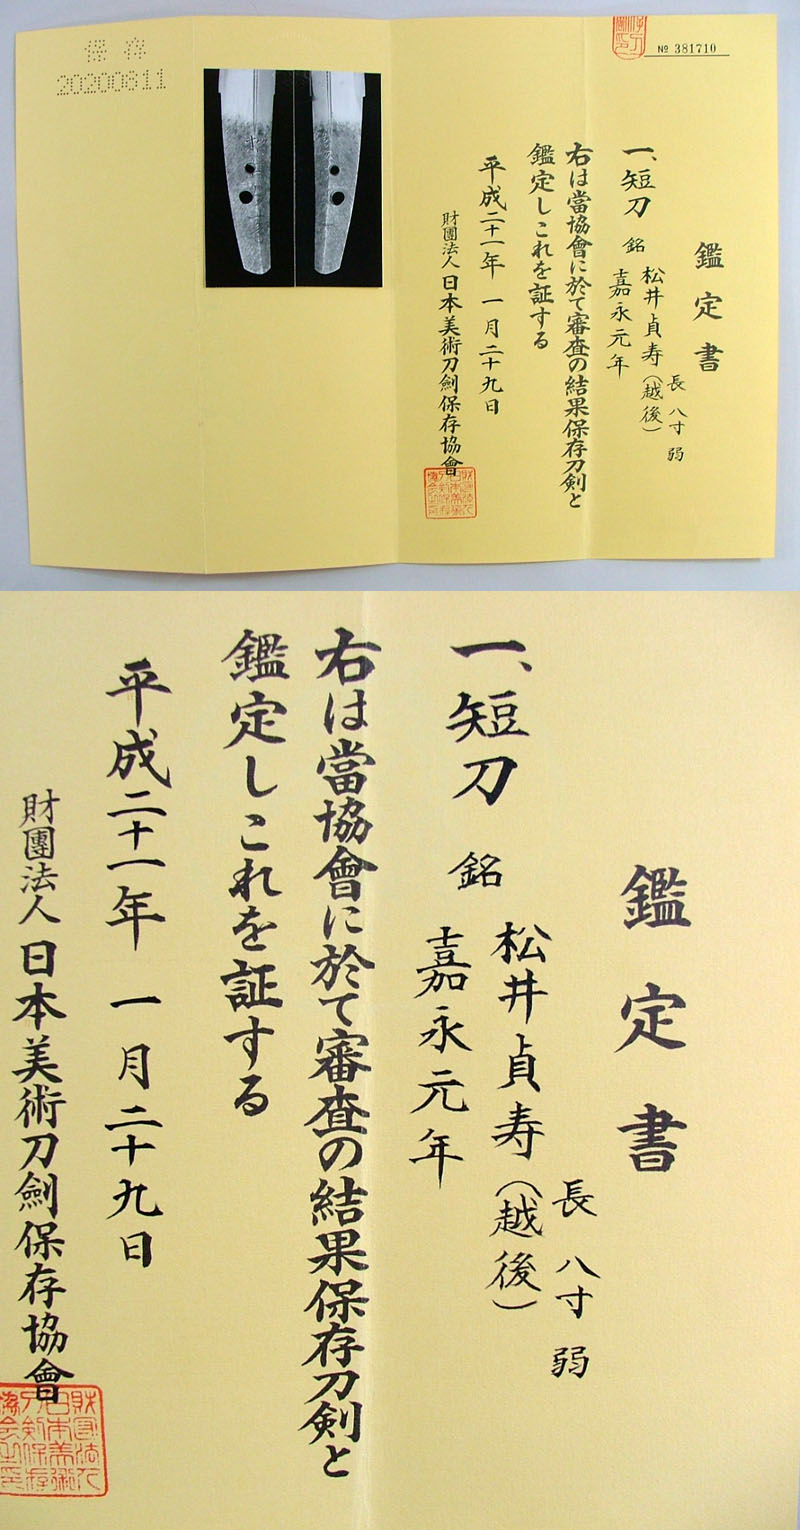 保存
20200611
№ 381710
鑑定書
一、短刀 銘 松井貞寿(越後)
嘉永元年
長 八寸 弱
右は當協會に於て審査の結果保存刀剣と
鑑定しこれを証する
平成二十一年 一月二十九日
財團法人 日本美術刀劍保存協會
鑑定書
一、短刀 銘 松井貞寿(越後)
嘉永元年
長 八寸 弱
右は當協會に於て審査の結果保存刀剣と
鑑定しこれを証する
平成二十一年 一月二十九日
財團法人 日本美術刀劍保存協會